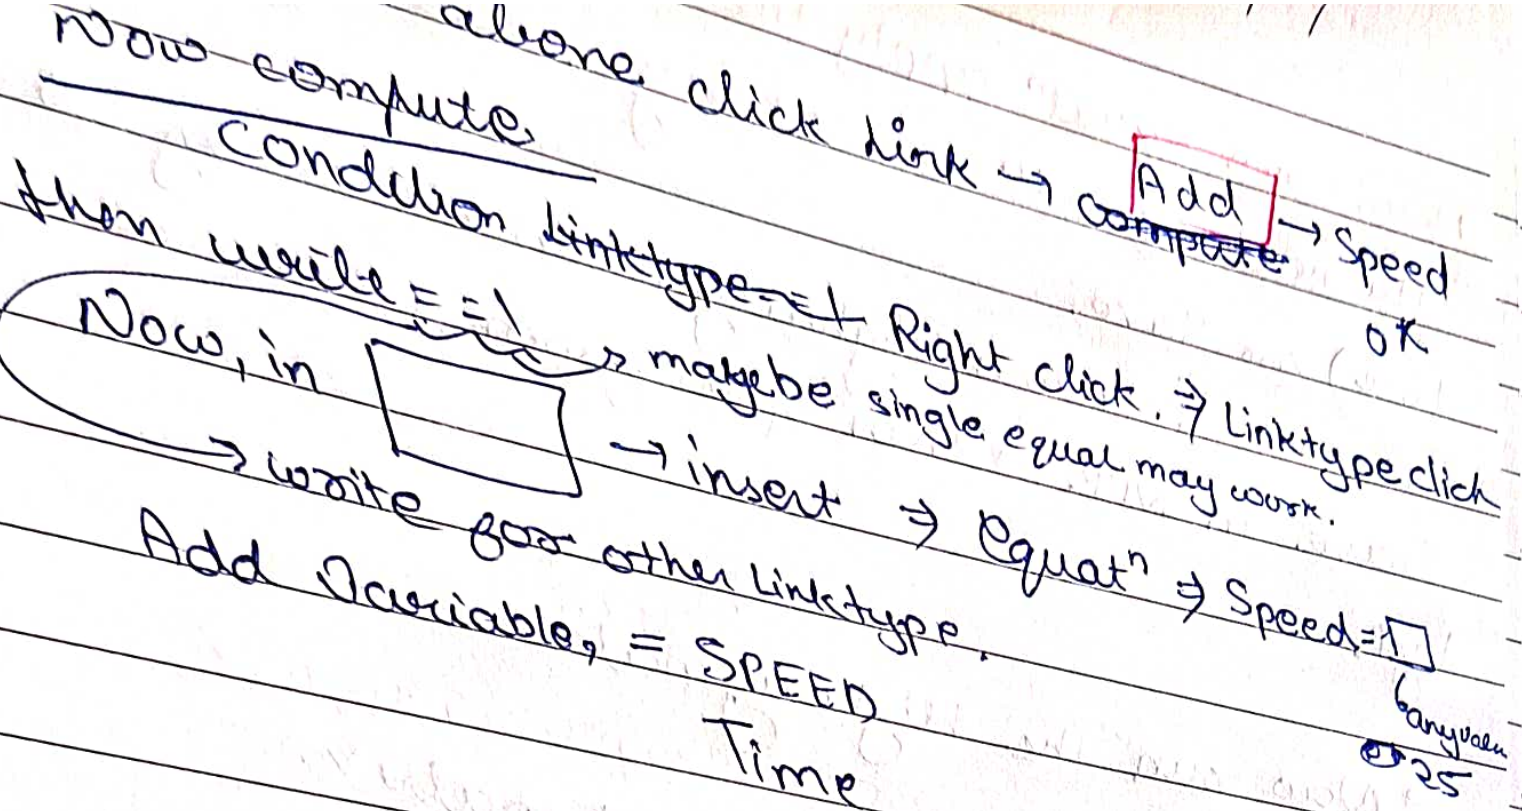 above click Link → Add → Speed
compute
OK
Now compute
Condition Linktype==1 Right click. ⇒ Linktype click
then write ==1 → maybe single equal may work.
Now, in □ → insert ⇒ Equatⁿ ⇒ Speed=□
→ write for other Linktype.
any value
25
Add Variable, = SPEED
Time